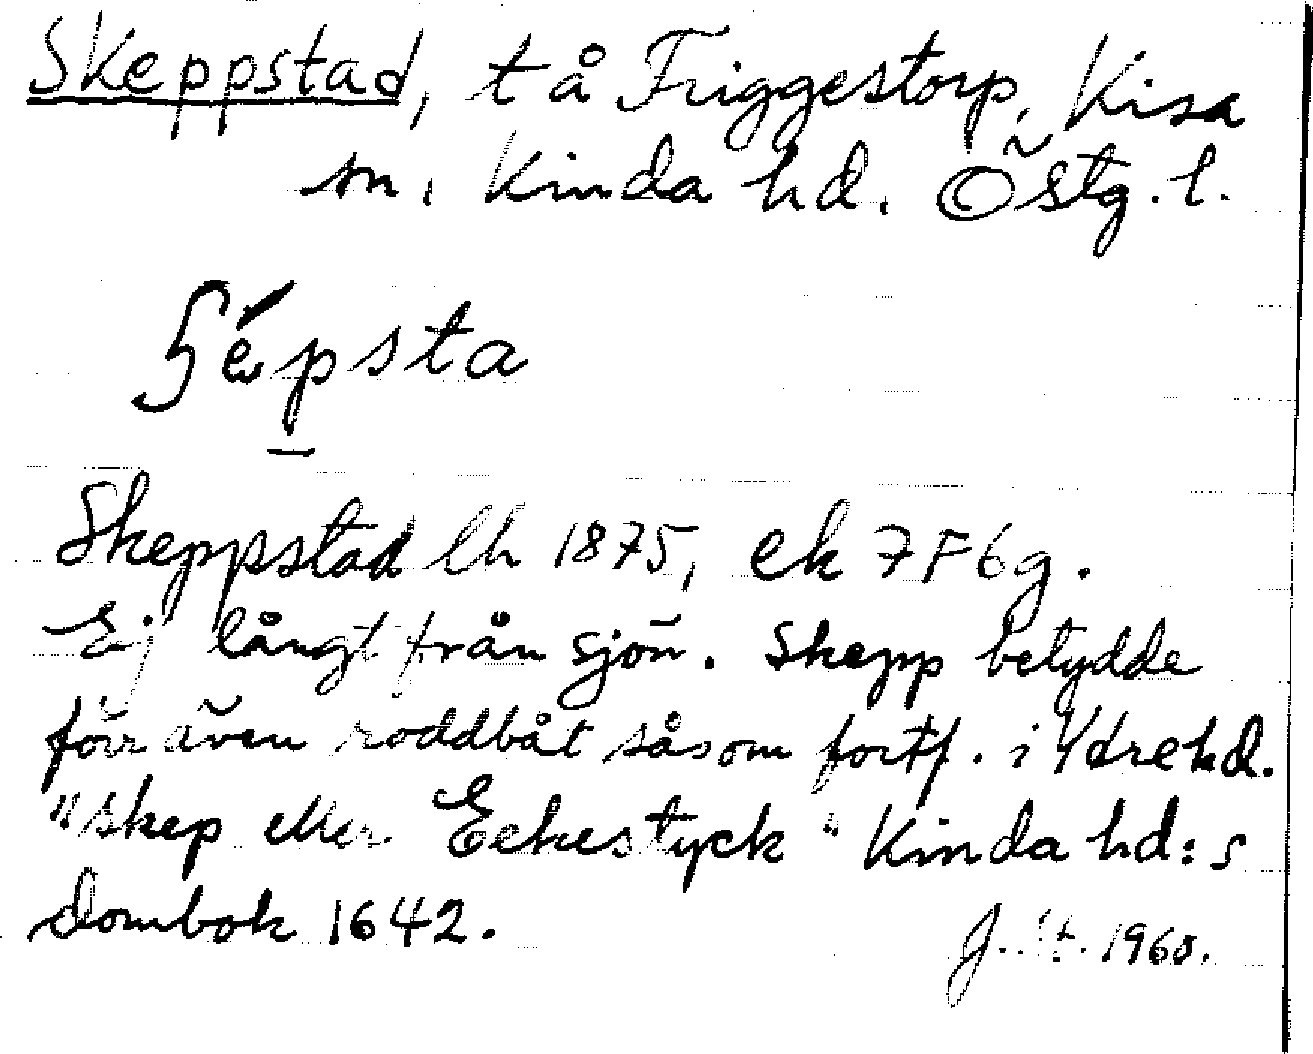 Skeppstad, t å Friggestorp, Kisa
sn, Kinda hd. Östg. l.
ʃépsta
Skeppstad lh 1875, ek 7F6g.
Ej långt från sjön. Skepp betydde
förr även roddbåt såsom fortf. i Ydre hd.
"skep eller Eekestyck" Kinda hd:s
dombok 1642.
1960.